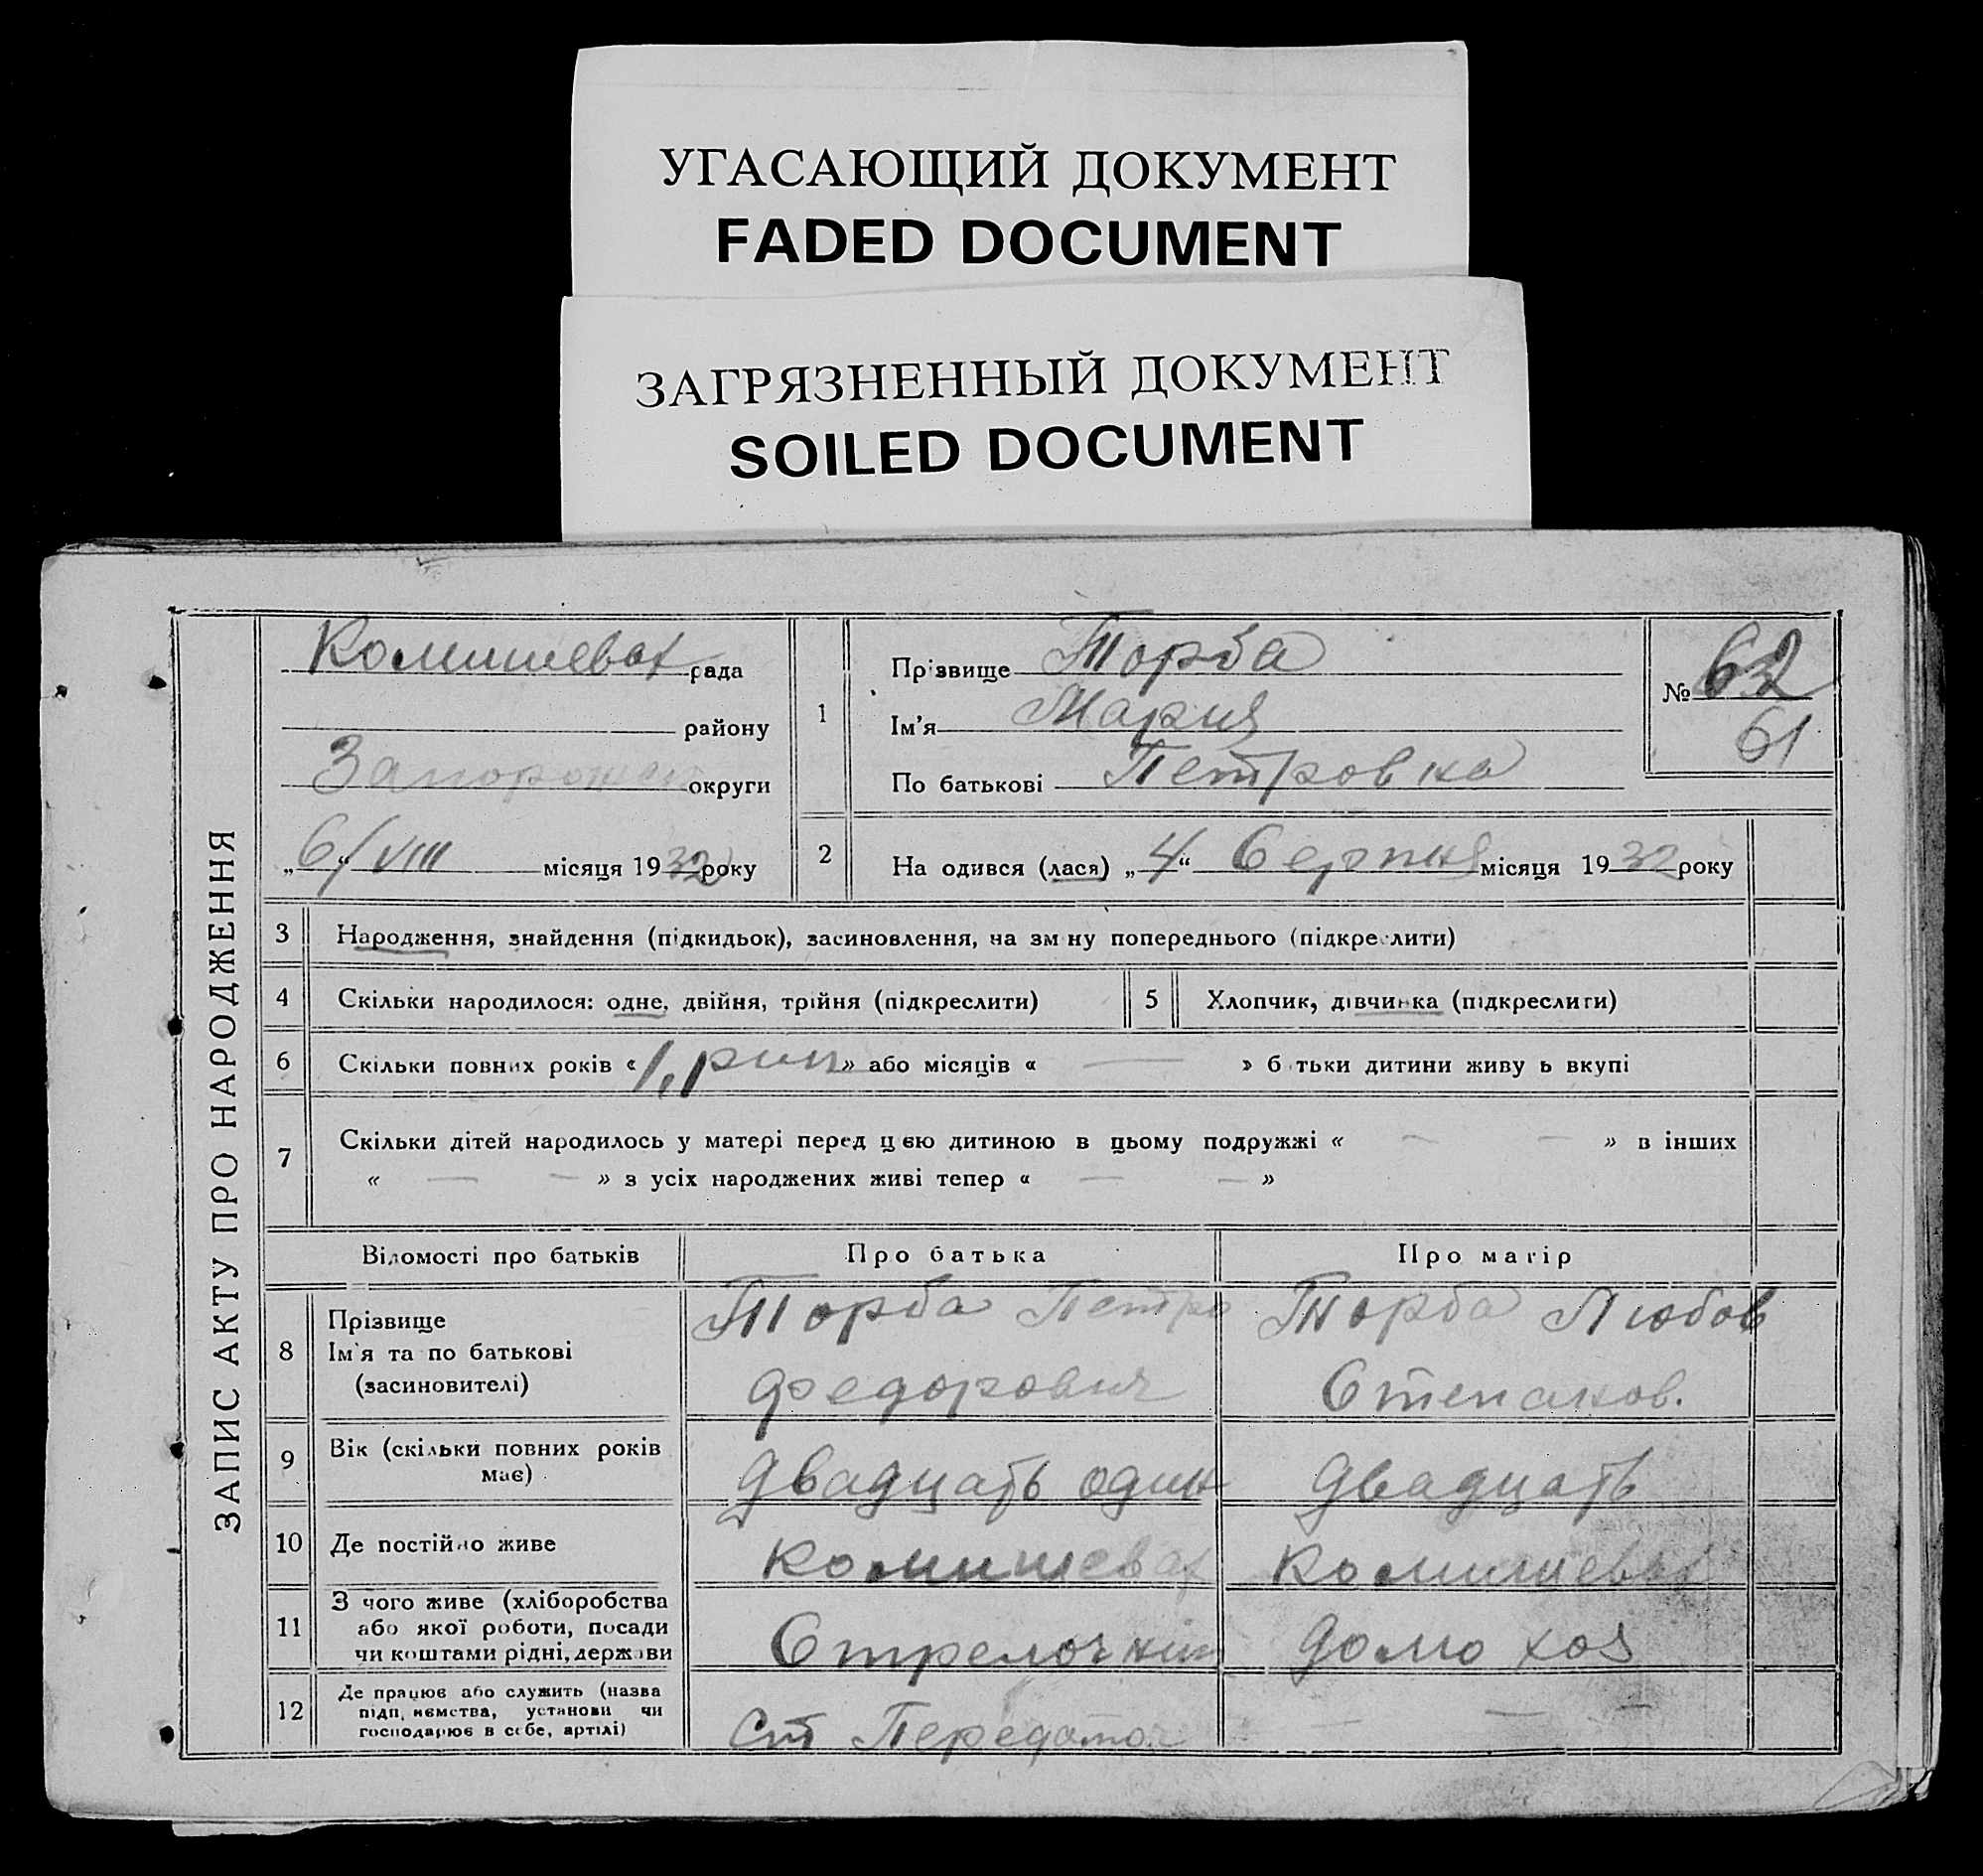 УГАСАЮЩИЙ ДОКУМЕНТ
FADED DOCUMENT
ЗАГРЯЗНЕННЫЙ ДОКУМЕНТ
SOILED DOCUMENT
ЗАПИС АКТУ ПРО НАРОДЖЕННЯ
Комишеват рада
району
Запорожск округи
„6/VIII місяця 1932 року
1
Прізвище Торба
Ім'я Мария
По батькові Петровна
№ 62
61
2
На одився (лася) „4“ Серпня місяця 1932 року
3 Народження, знайдення (підкидьок), засиновлення, на зм ну попереднього (підкреслити)
4 Скільки народилося: одне, двійня, трійня (підкреслити)
5 Хлопчик, дівчинка (підкреслити)
6 Скільки повних років «1, рик» або місяців « — » б тьки дитини живу ь вкупі
7 Скільки дітей народилось у матері перед цією дитиною в цьому подружжі « — — » в інших
« — — » з усіх народжених живі тепер « — — »
Відомості про батьків
Про батька
Про матір
8 Прізвище
Ім'я та по батькові
(засиновителі)
Торба Петро
Федорович
Торба Любов
Степанов.
9 Вік (скільки повних років
має)
двадцать один
двадцать
10 Де постійно живе
Комишеват
Комишеват
11 З чого живе (хліборобства
або якої роботи, посади
чи коштами рідні, держави
Стрелочнік
домо хоз
12 Де працює або служить (назва
підп, ємства, установи чи
господарює в себе, артілі)
Ст Передаточ
— — —